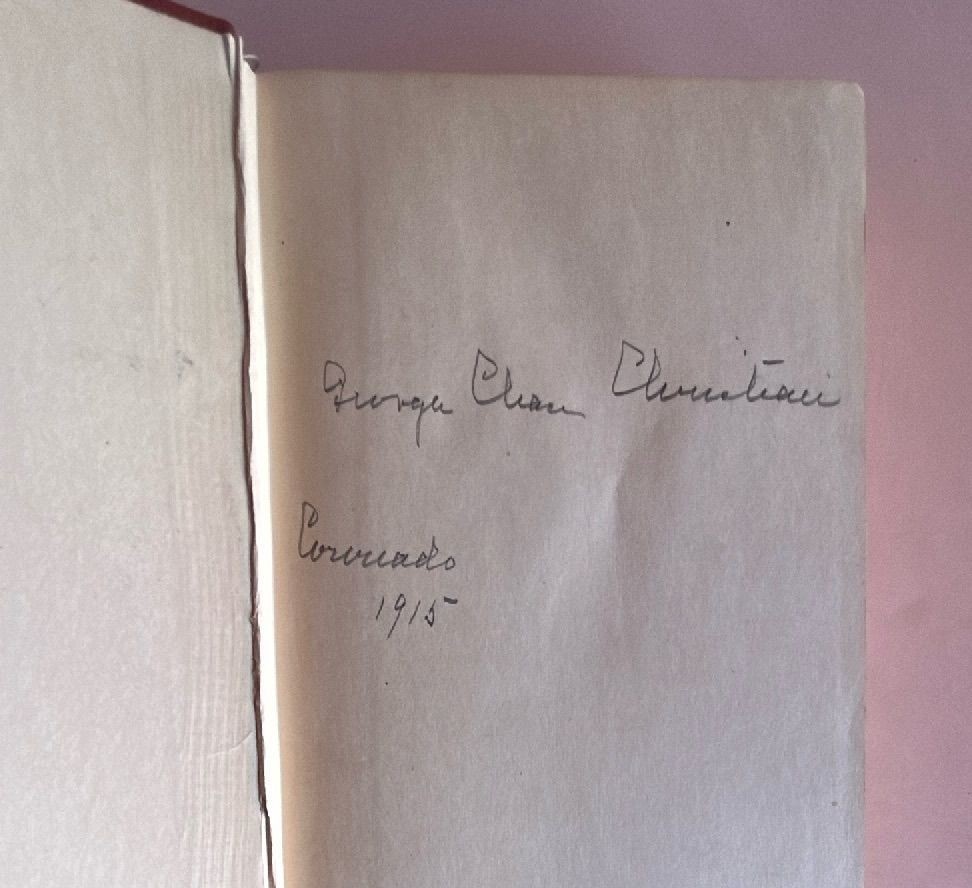 George Chase Christian
Coronado
1915